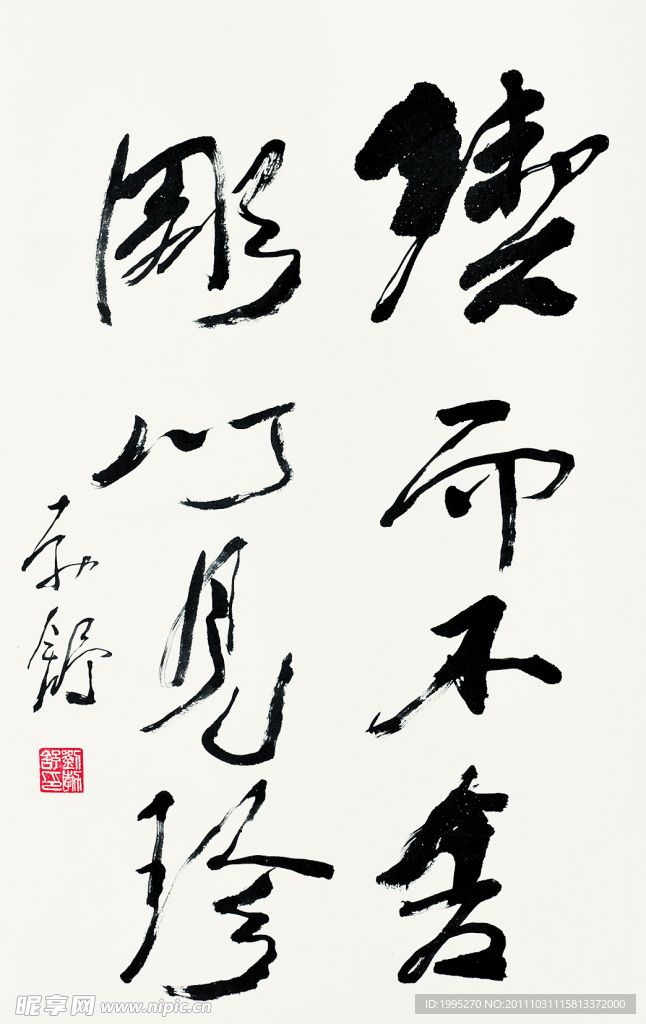 鍥而不舍
彫見珍
勃舒
劉勃舒印
昵享网 www.nipic.cn
ID:1995270 NO:20111031115813372000